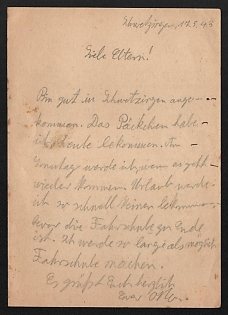 Schwetzingen, 17.5.44
Liebe Eltern!
Bin gut in Schwetzingen ange-
kommen. Das Päckchen habe
ich heute bekommen. Am
Sonntag werde ich wenn es geht
wieder kommen. Urlaub werde
ich so schnell keinen bekommen
bevor die Fahrschule zu Ende
ist. Ich werde so lange als möglich
Fahrschule machen.
Es grüßt Euch herzlich
Euer